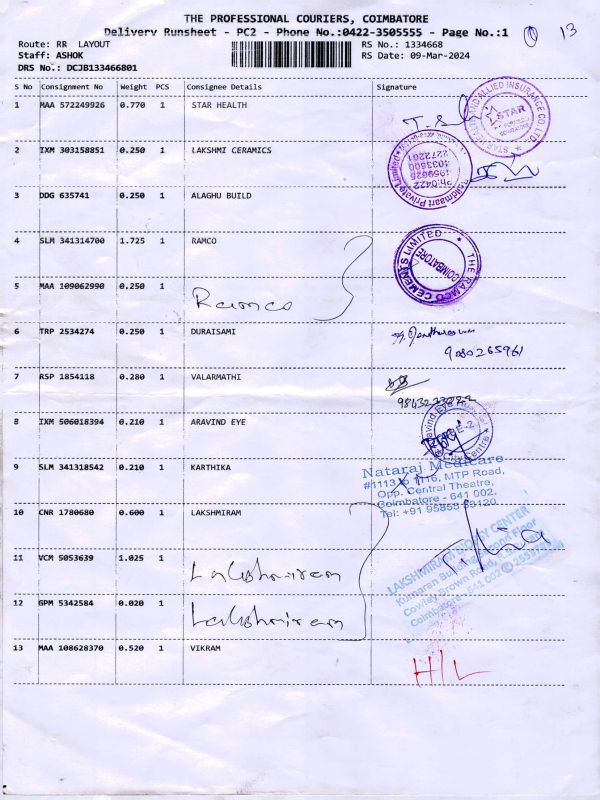 THE PROFESSIONAL COURIERS, COIMBATORE
Delivery Runsheet - PC2 - Phone No.:0422-3505555 - Page No.:1
1 13
Route: RR LAYOUT RS No.: 1334668
Staff: ASHOK RS Date: 09-Mar-2024
DRS No.: DCJB133466801
S No Consignment No Weight PCS Consignee Details Signature
1 MAA 572249926 0.770 1 STAR HEALTH
STAR
2 IXM 303158851 0.250 1 LAKSHMI CERAMICS
3 DDG 635741 0.250 1 ALAGHU BUILD
4 SLM 341314700 1.725 1 RAMCO
THE RAMCO CEMENTS LIMITED
COIMBATORE
5 MAA 109062990 0.250 1
Ramco
6 TRP 2534274 0.250 1 DURAISAMI
9080265961
7 RSP 1854118 0.280 1 VALARMATHI
8 IXM 506018394 0.210 1 ARAVIND EYE
9 SLM 341318542 0.210 1 KARTHIKA
Nataraj Medicare
#1113 to 1116, MTP Road,
Opp. Central Theatre,
Coimbatore - 641 002.
10 CNR 1780680 0.600 1 LAKSHMIRAM
11 VCM 5053639 1.025 1
Lakshmiram
12 GPM 5342584 0.020 1
Lakshmiram
13 MAA 108628370 0.520 1 VIKRAM
H/L